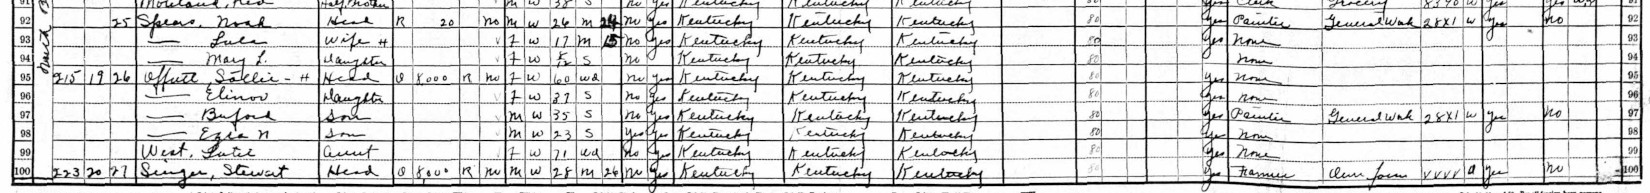 91 Half Brother M W 38 S No Yes Kentucky Kentucky Kentucky Yes Clerk Grocery 8390 W Yes
92 25 Spears, Noah Head R 20 No M W 26 M 24 No Yes Kentucky Kentucky Kentucky 80 Yes Painter General Work 28X1 W Yes No 92
93 — Lula Wife H V F W 17 M 15 No Yes Kentucky Kentucky Kentucky 80 Yes None 93
94 — May L. Daughter V F W S No Kentucky Kentucky Kentucky 80 None 94
95 215 19 26 Offutt, Sallie - H Head O 8000 R No F W 60 Wd No Yes Kentucky Kentucky Kentucky 80 Yes None 95
96 — Elinor Daughter V F W 37 S No Yes Kentucky Kentucky Kentucky 80 Yes None 96
97 — Buford Son M W 35 S No Yes Kentucky Kentucky Kentucky 80 Yes Painter General Work 28X1 W Yes No 97
98 — Ezra N Son M W 23 S Yes Yes Kentucky Kentucky Kentucky 80 Yes None 98
99 West, Aunt V F W 71 Wd No Yes Kentucky Kentucky Kentucky 80 Yes None 99
100 223 20 27 Singer, Stewart Head O 8000 R No M W 28 M 26 No Yes Kentucky Kentucky Kentucky 80 Yes Farmer Own farm VVVV Yes No 100